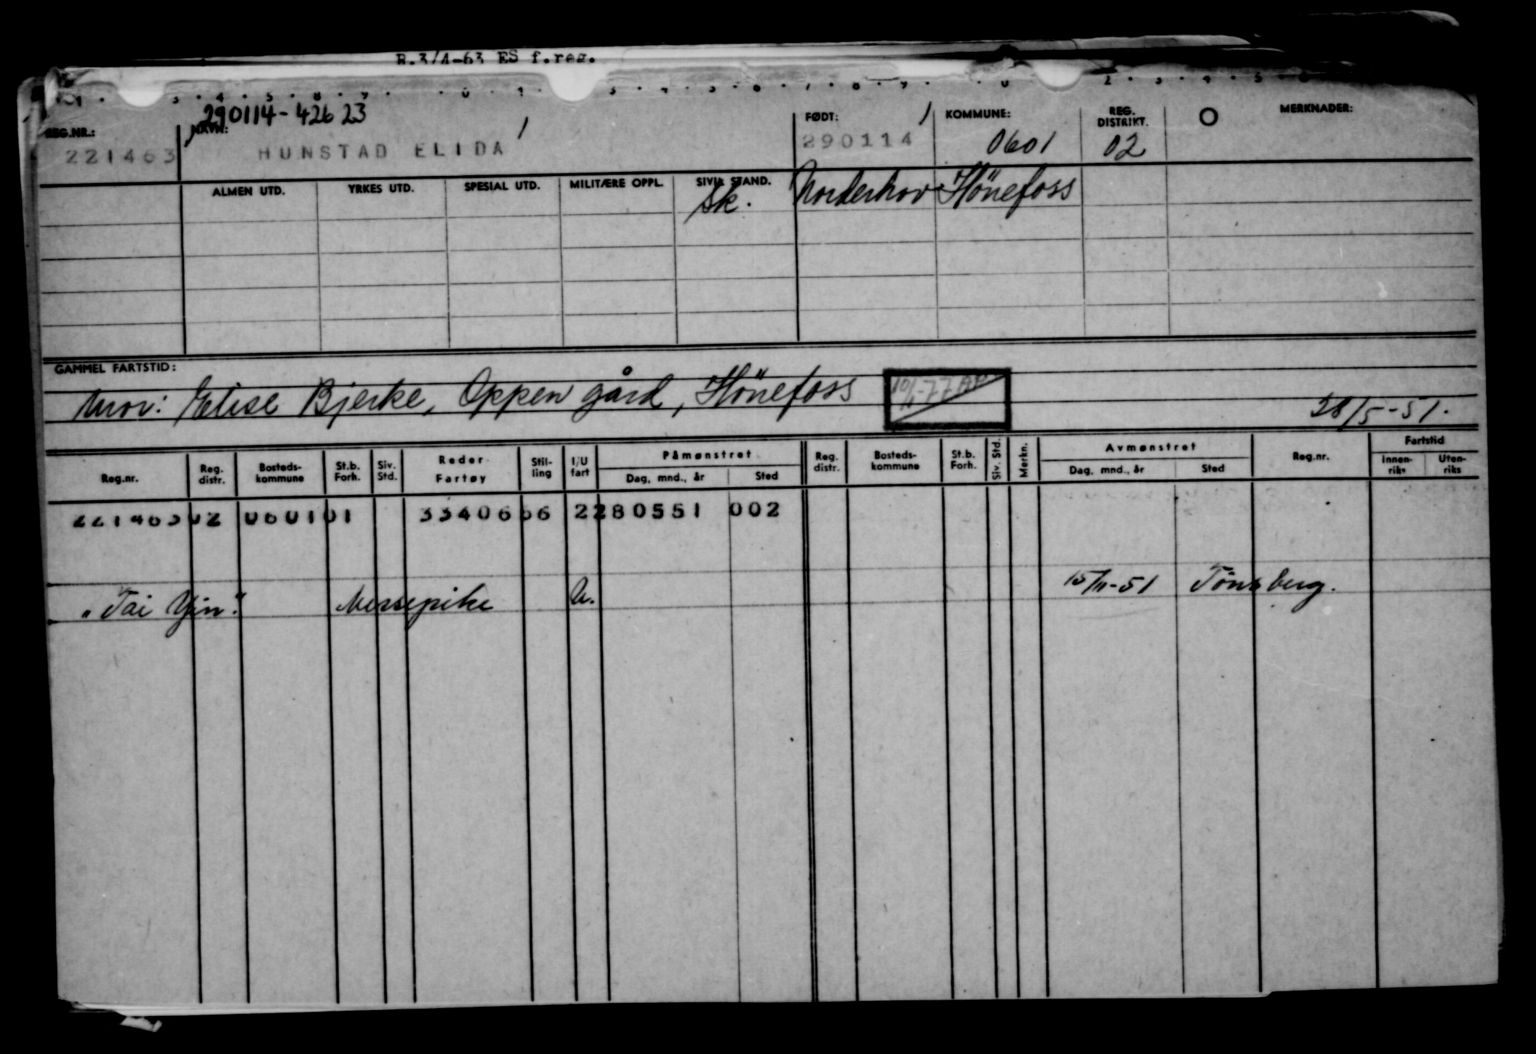 R.3/4-63 ES f.reg.
290114-42623
REG.NR.: NAVN: FØDT: KOMMUNE: REG. DISTRIKT. MERKNADER:
221463 HUNSTAD ELIDA 290114 0601 02
ALMEN UTD. YRKES UTD. SPESIAL UTD. MILITÆRE OPPL. SIVIL STAND.
sk. Norderhov Hönefoss
GAMMEL FARTSTID:
mor: Elise Bjerke, Oppen gård, Hönefoss
28/5-51.
Reg.nr. Reg. distr. Bosteds-kommune St.b. Forh. Siv. Std. Reder Fartøy Stil-ling I/U fart Påmønstret Dag, mnd., år Sted Reg. distr. Bosteds-kommune St.b. Forh. Siv. Std. Merkn. Avmønstret Dag, mnd., år Sted Reg.nr. Fartstid Innen-riks Uten-riks
221463 02 0601 01 3340666 2 280551 002
"Tai Yin". Messepike U. 15/11-51 Tönsberg.